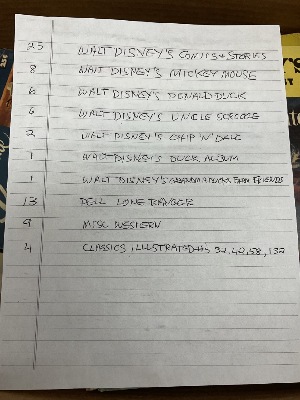 25 WALT DISNEY'S COMICS & STORIES
8 WALT DISNEY'S MICKEY MOUSE
6 WALT DISNEY'S DONALD DUCK
6 WALT DISNEY'S UNCLE SCROOGE
2 WALT DISNEY'S CHIP 'N' DALE
1 WALT DISNEY'S DUCK ALBUM
1 WALT DISNEY'S GRANDMA DUCK'S FARM FRIENDS
13 DELL LONE RANGER
9 MISC WESTERN
4 CLASSICS ILLUSTRATED #'S 32, 42, 58, 132